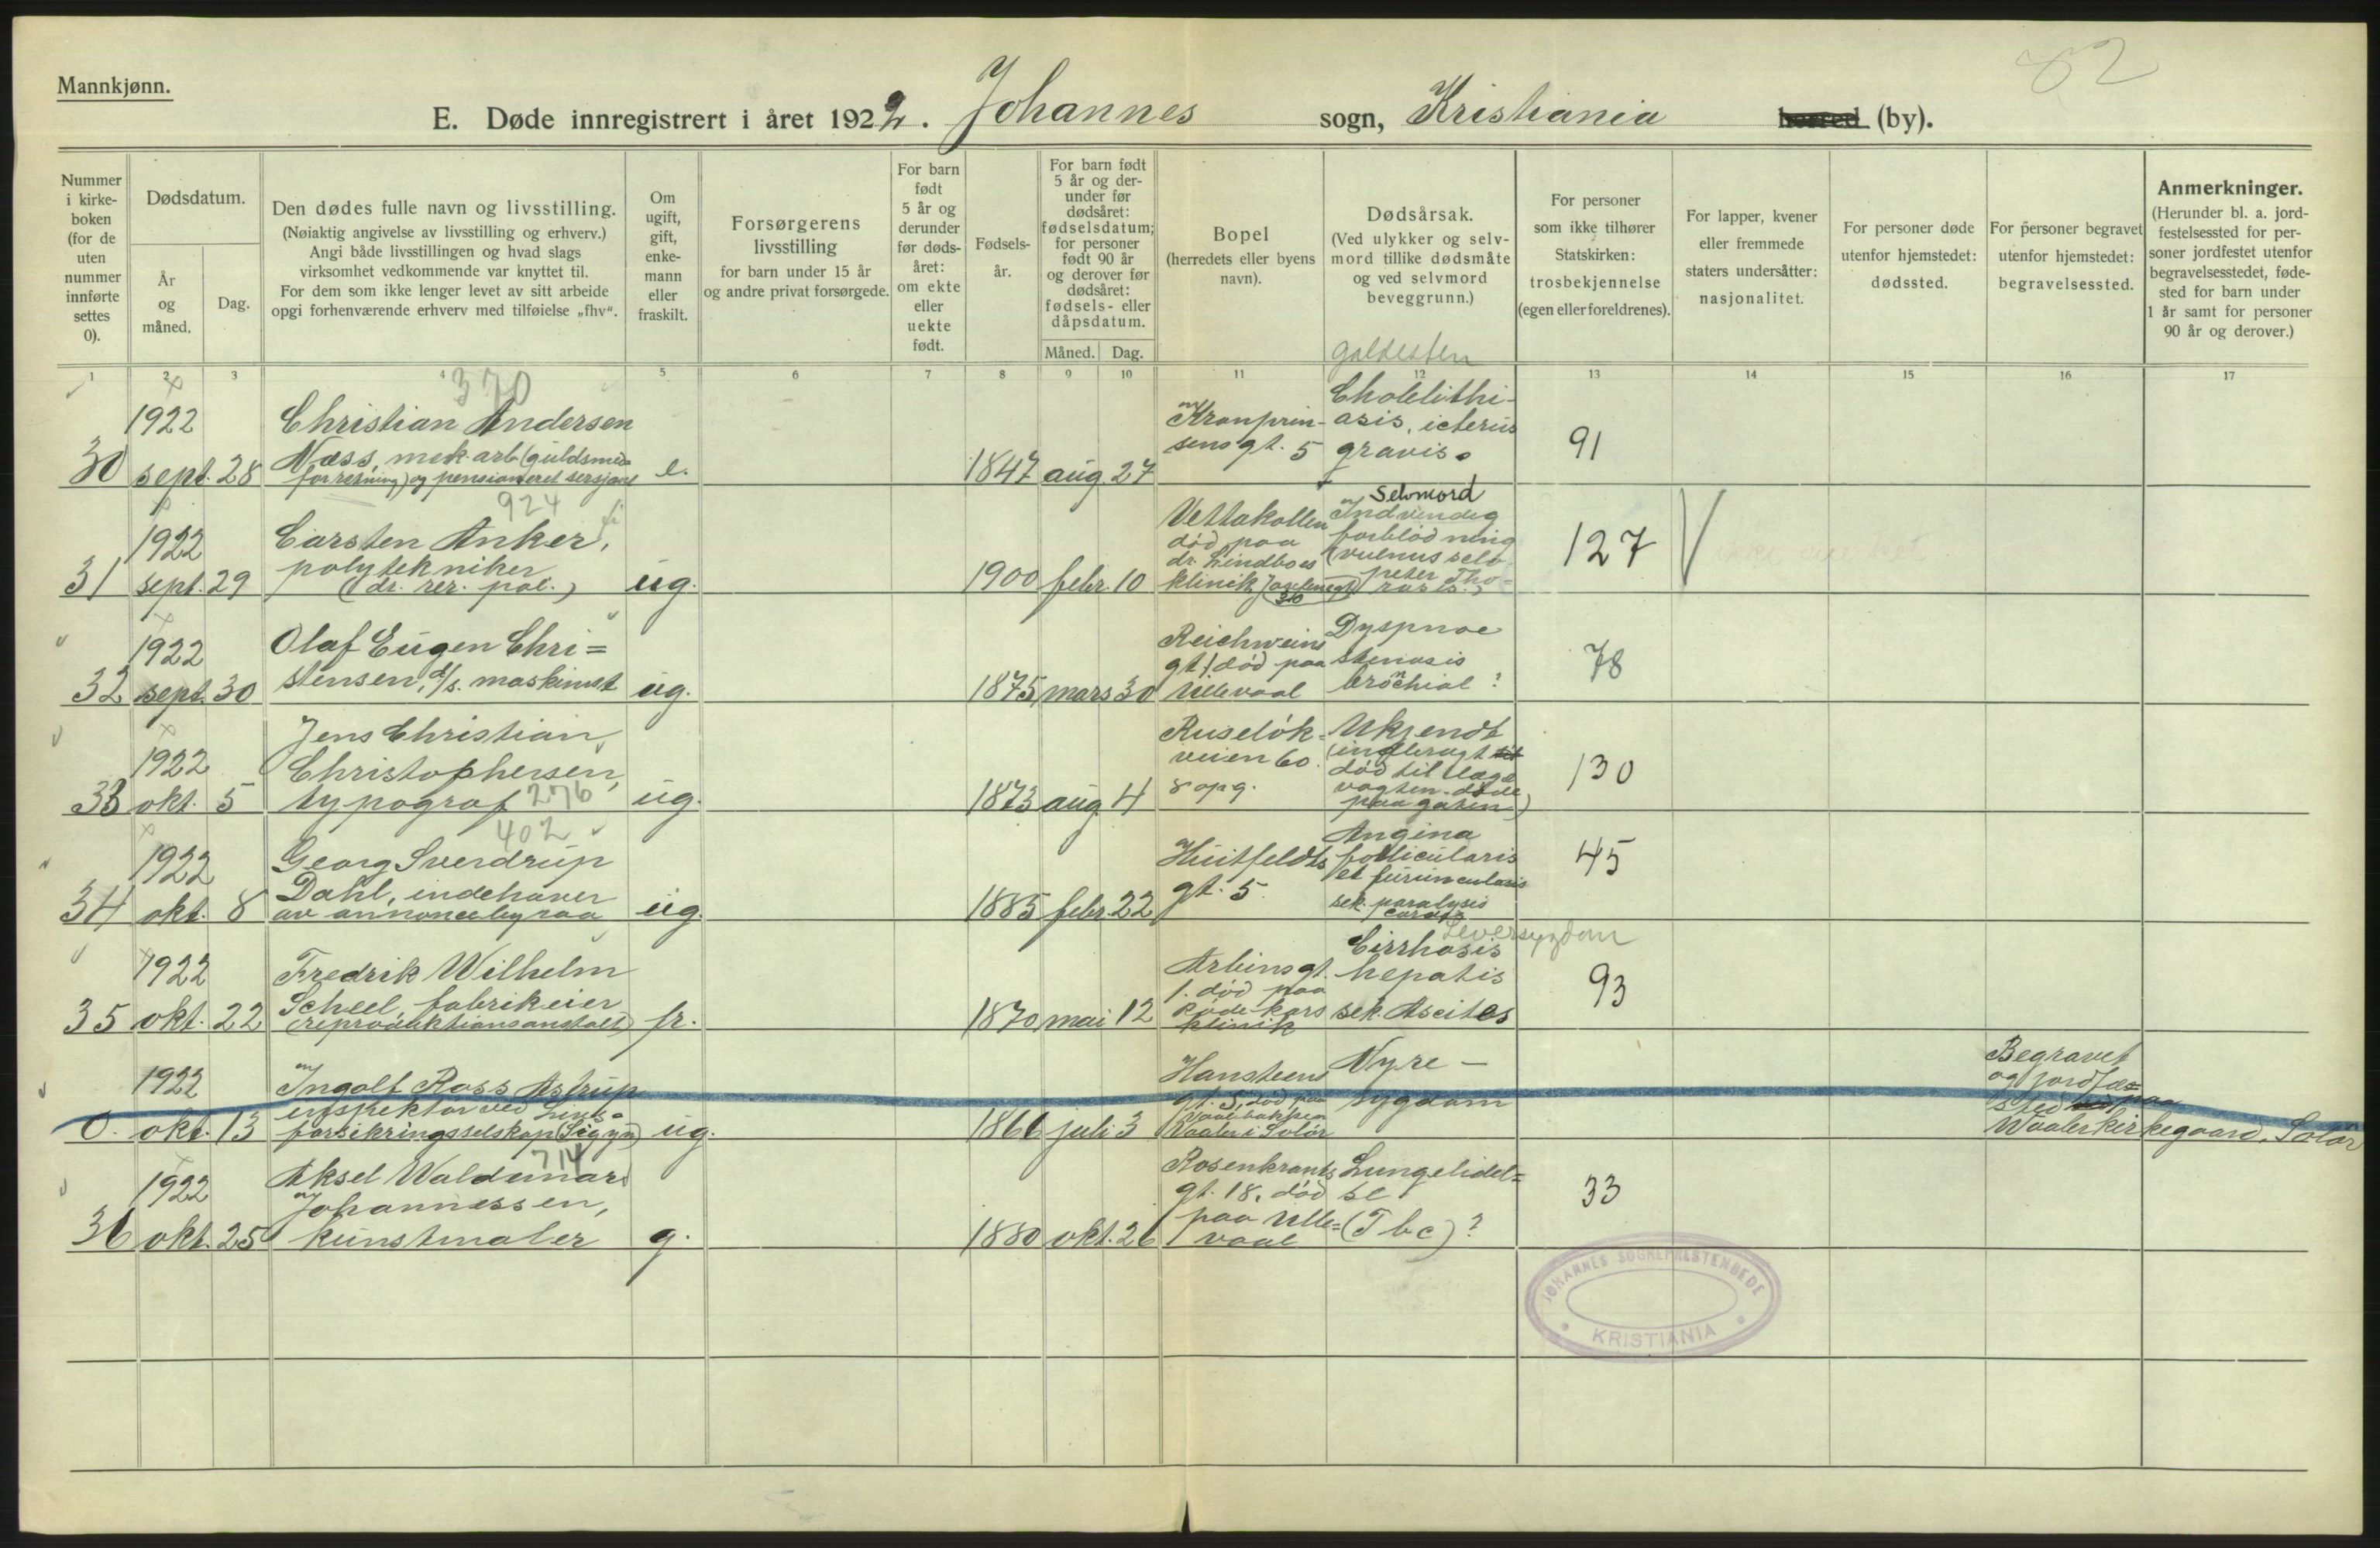 82
Mannkjønn.
E. Døde innregistrert i året 1922. Johannes sogn, Kristiania herred (by).
Nummer i kirke-boken (for de uten nummer innførte settes 0).
Dødsdatum.
År og måned.
Dag.
Den dødes fulle navn og livsstilling.
(Nøiaktig angivelse av livsstilling og erhverv.)
Angi både livsstillingen og hvad slags
virksomhet vedkommende var knyttet til.
For dem som ikke lenger levet av sitt arbeide
opgi forhenværende erhverv med tilføielse „fhv“.
Om ugift, gift, enke-mann eller fraskilt.
Forsørgerens
livsstilling
for barn under 15 år
og andre privat forsørgede.
For barn født 5 år og derunder før døds-året: om ekte eller uekte født.
Fødsels-år.
For barn født 5 år og der-under før dødsåret: fødselsdatum; for personer født 90 år og derover før dødsåret: fødsels- eller dåpsdatum.
Måned. Dag.
Bopel
(herredets eller byens navn).
Dødsårsak.
(Ved ulykker og selv-mord tillike dødsmåte og ved selvmord beveggrunn.)
For personer som ikke tilhører Statskirken: trosbekjennelse (egen eller foreldrenes).
For lapper, kvener eller fremmede staters undersåtter: nasjonalitet.
For personer døde utenfor hjemstedet: dødssted.
For personer begravet utenfor hjemstedet: begravelsessted.
Anmerkninger.
(Herunder bl. a. jord-festelsessted for per-soner jordfestet utenfor begravelsesstedet, føde-sted for barn under 1 år samt for personer 90 år og derover.)
1 2 3 4 5 6 7 8 9 10 11 12 13 14 15 16 17
galdesten
370
30 1922 sept. 28
Christian Andersen
Næss, mek. arb. (guldsmed-
forretning) og pensioneret sersjant
e. 1847 aug. 27
Kronprin-
sens gt. 5
Cholelithi-
asis, icterus
gravis.
91
924
31 1922 sept. 29
Carsten Anker,
polytekniker
(dr. rer. pol.)
ug. 1900 febr. 10
Vettakollen
død paa
dr. Lindboes
klinik
Selvmord
Indvendig
forblødning
(vulnus sclo-
127
32 1922 sept. 30
Olaf Eugen Chri=
stensen, d/s. maskinist
ug. 1875 mars 30
Reichweins
gt. 1 død paa
Ullevaal
Dyspnoe
stenosis
bronchial ?
78
33 1922 okt. 5
Jens Christian
Christophersen,
typograf 276
ug. 1873 aug. 4
Ruseløk-
veien 60.
8 opg.
Ukjendt
(indbragt
død til læge
vagten-døde
paa gaten)
130
402
34 1922 okt. 8
Georg Sverdrup
Dahl, indehaver
av annoncebyraa
ug. 1885 febr. 22
Huitfeldts
gt. 5.
Angina
follicularis
et furuncularis
sek. paralysis
cordis
45
35 1922 okt. 22
Fredrik Wilhelm
Scheel, fabrikeier
(reproduktionsanstalt)
fr. 1870 mai 12
Arbins gt.
1. død paa
Røde kors
klinik
Leversygdom
Cirrhosis
hepatis
sek. Ascites
93
0. 1922 okt. 13
Ingolf Ross Astrup
inspektør ved Livs-
forsikringsselskap (Sigyn)
ug. 1866 juli 3
Hansteens
gt. 5, død paa
Vaaler i Solør
Nyre-
sygdom
Begravet
og jordfæs=
sted paa
Vaaler kirkegaard. Solør
714
36 1922 okt. 25
Aksel Waldemar
Johannessen,
kunstmaler
g. 1880 okt. 26
Rosenkrants
gt. 18, død
paa Ulle=
vaal
Lungelidel=
se
(Tbc) ?
33
JOHANNES SOGNEPRESTEMBEDE
KRISTIANIA